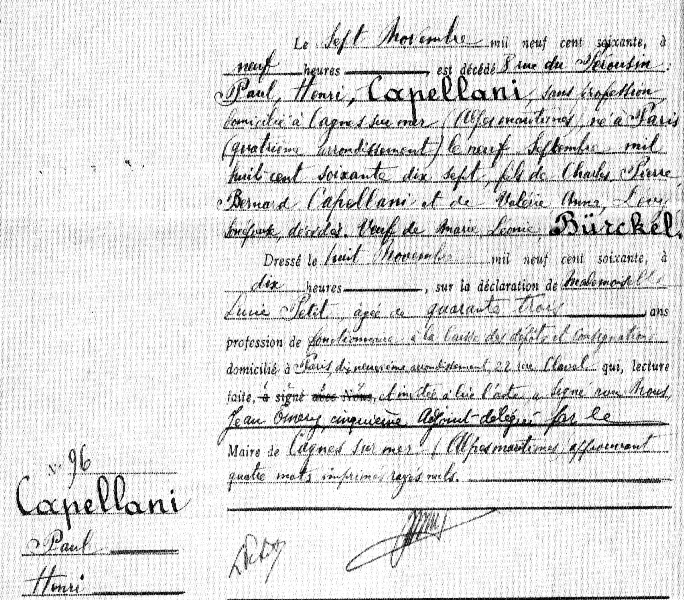 Le Sept Novembre mil neuf cent soixante, à
neuf heures, est décédé 8 rue du
Paul, Henri, Capellani, sans profession
domicilié à Cagnes sur mer (Alpes maritimes) né à Paris
(quatrième arrondissement) le neuf Septembre mil
huit cent soixante dix sept, fils de Charles, Pierre
Bernard Capellani et de Valérie Anna,
décédés, Veuf de Marie, Léonie, Bürckel.
Dressé le huit Novembre mil neuf cent soixante, à
dix heures, sur la déclaration de Mademoiselle
Lucie Petit, âgée de quarante trois ans
profession de fonctionnaire à la Caisse des dépôts et Consignations
domicilié à Paris, dix neuvième arrondissement, 22 rue Clavel qui, lecture
faite, a signé avec Nous, et invitée à lire l'acte a signé avec Nous,
Jean cinquième Adjoint délégué par le
Maire de Cagnes sur mer (Alpes maritimes approuvant
quatre mots imprimés rayés nuls.
N° 96
Capellani
Paul
Henri